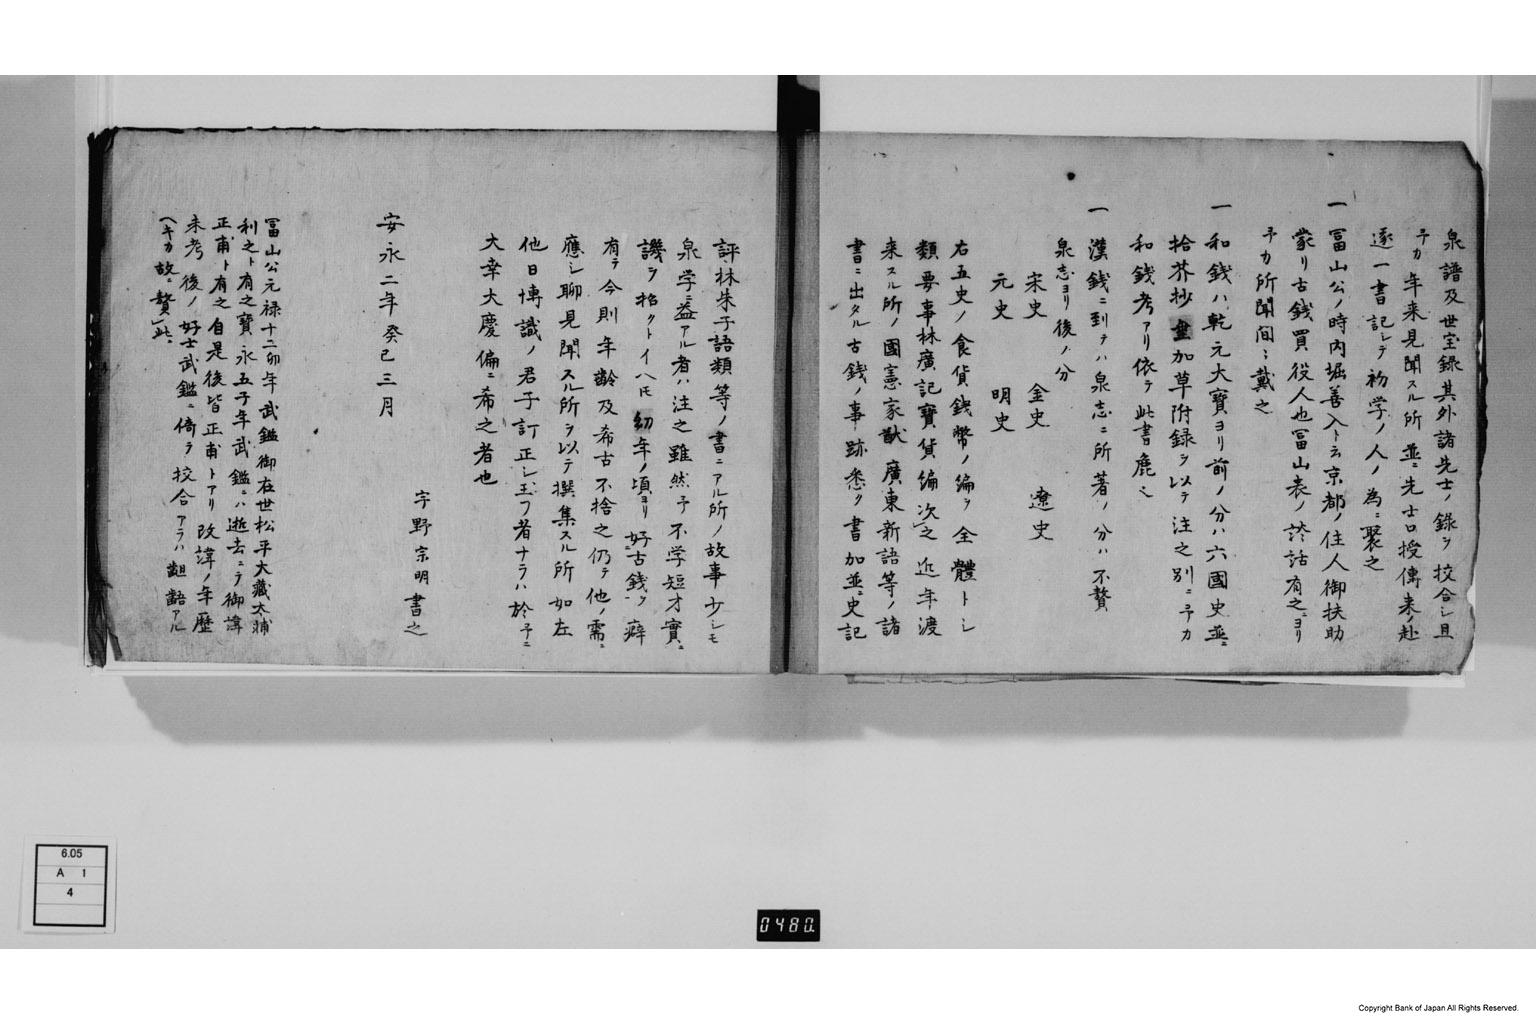 泉譜及世宝録其外諸先士ノ録ヲ挍合シ且
予カ年来見聞スル所並ニ先士口授傳来ノ赴
逐一書記シテ初学ノ人ノ為ニ聚之
一冨山公ノ時内堀善入ト云京都ノ住人御扶助
蒙リ古銭買役人也冨山表ノ談話有之ヨリ
予カ所聞間ニ戴之
一和銭ハ乾元大寳ヨリ前ノ分ハ六國史並ニ
拾芥抄加草附録ヲ以テ注之別ニ予カ
和銭考アリ依テ此書麁之
一漢銭ニ到テハ泉志ニ所著ノ分ハ不贅
泉志ヨリ後ノ分
宋史 金史 遼史
元史 明史
右五史ノ食貨銭幣ノ編ヲ全體トシ
類要事林廣記寳貨編次之近年渡
来スル所ノ國憲家猷廣東新語等ノ諸
書ニ出タル古銭ノ事跡悉ク書加並ニ史記
評林朱子語類等ノ書ニアル所ノ故事少シモ
泉学ニ益アル者ハ注之雖然予不学短才實ニ
譏ヲ招クトイヘ𪜈幼年ノ頃ヨリ好古銭ヲ癖
有テ今則年齢及希古不捨之仍テ他ノ需ニ
應シ聊見聞スル所ヲ以テ撰集スル所如左
他日博識ノ君子訂正シ玉フ者ナラハ於予ニ
大幸大慶偏ニ希之者也
宇野宗明書之
安永二年癸巳三月
冨山公元禄十二卯年武鑑御在世松平大藏大輔
利之ト有之寳永五子年武鑑ニハ逝去ニテ御諱
正甫ト有之自是後皆正甫トアリ改諱ノ年歴
未考後ノ好士武鑑ニ倚テ挍合アラハ齟齬アル
ヘキカ故ニ贅此ニ
6.05
A 1
4
0480
Copyright Bank of Japan All Rights Reserved.